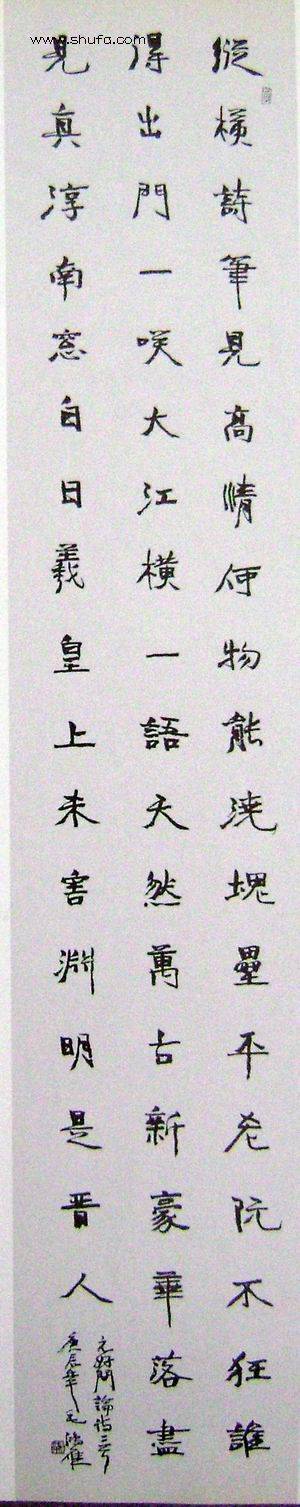 www.shufa.com
縱橫詩筆見高情何物能澆塊壘平老阮不狂誰
得出門一咲大江橫一語天然萬古新豪華落盡
見真淳南窓白日羲皇上未害淵明是晉人
元好問論詩三首
庚辰年